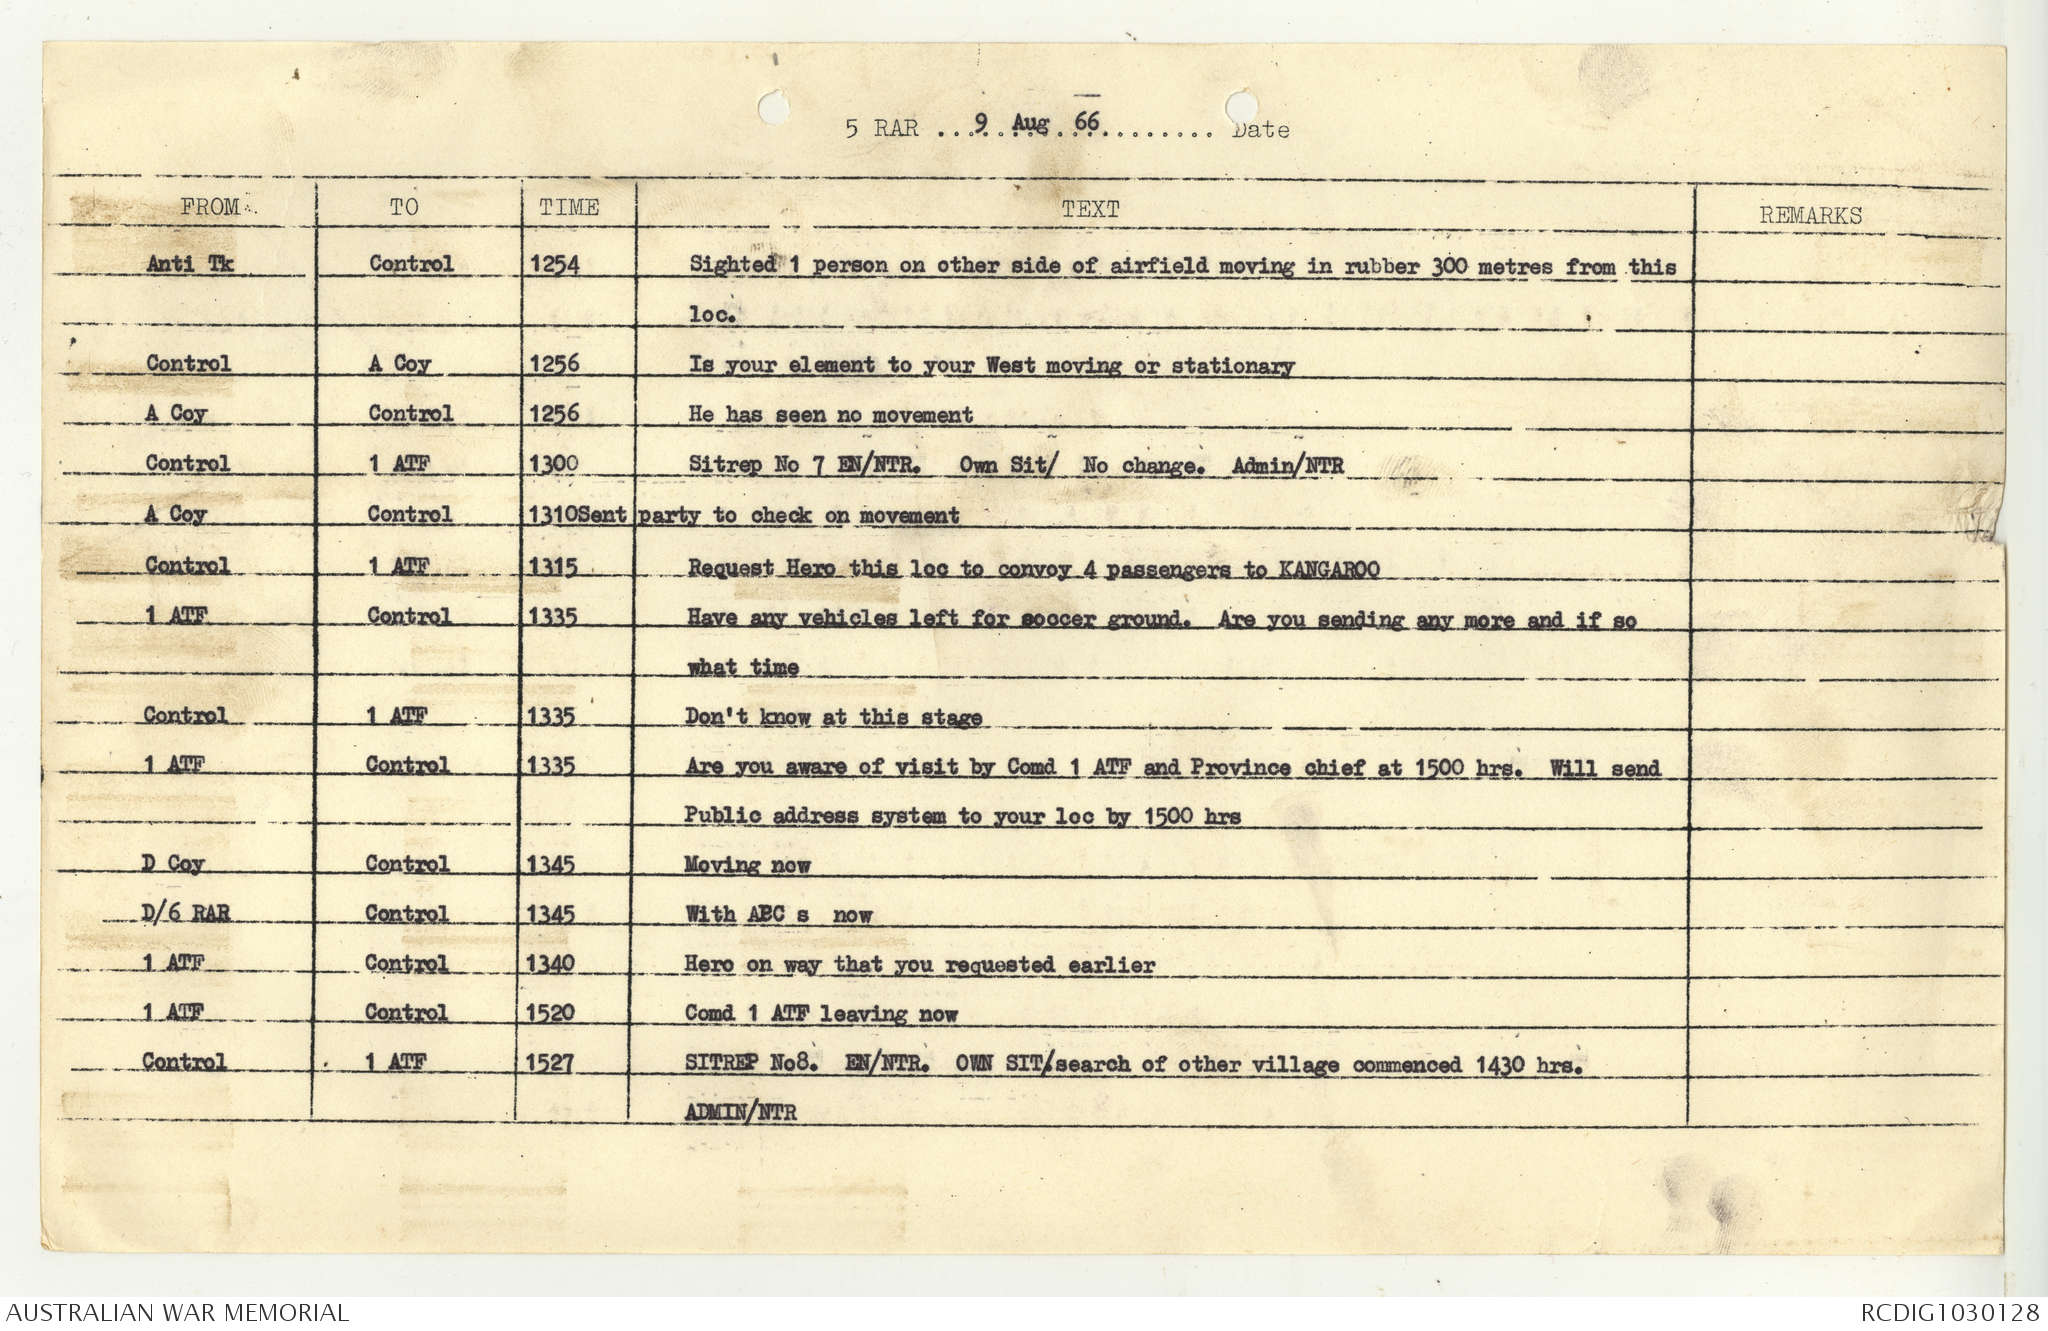 5 RAR ...9 Aug 66.......... Date
FROM TO TIME TEXT REMARKS
Anti Tk Control 1254 Sighted 1 person on other side of airfield moving in rubber 300 metres from this
loc.
Control A Coy 1256 Is your element to your West moving or stationary
A Coy Control 1256 He has seen no movement
Control 1 ATF 1300 Sitrep No 7 EN/NTR. Own Sit/ No change. Admin/NTR
A Coy Control 1310Sent party to check on movement
Control 1 ATF 1315 Request Hero this loc to convoy 4 passengers to KANGAROO
1 ATF Control 1335 Have any vehicles left for soccer ground. Are you sending any more and if so
what time
Control 1 ATF 1335 Don't know at this stage
1 ATF Control 1335 Are you aware of visit by Comd 1 ATF and Province chief at 1500 hrs. Will send
Public address system to your loc by 1500 hrs
D Coy Control 1345 Moving now
D/6 RAR Control 1345 With ABC s now
1 ATF Control 1340 Hero on way that you requested earlier
1 ATF Control 1520 Comd 1 ATF leaving now
Control 1 ATF 1527 SITREP No8. EN/NTR. OWN SIT/search of other village commenced 1430 hrs.
ADMIN/NTR
AUSTRALIAN WAR MEMORIAL RCDIG1030128